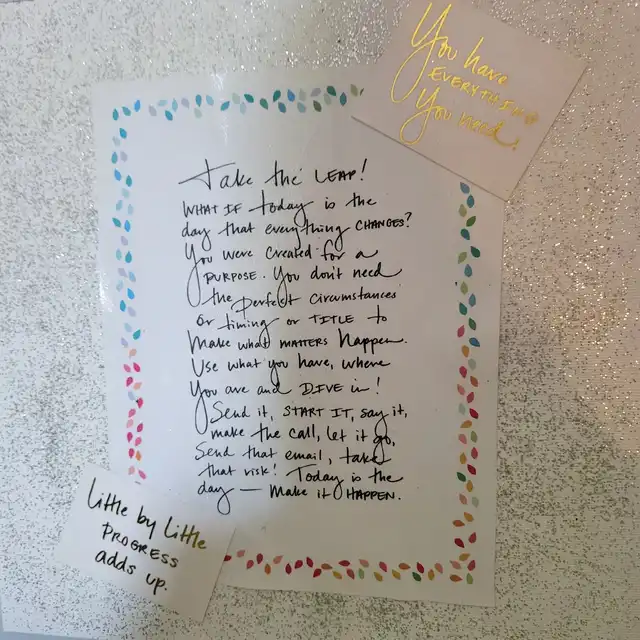 You have
EVERYTHING
You need.
Take the LEAP!
WHAT IF today is the
day that everything CHANGES?
You were created for a
PURPOSE. You don't need
the perfect circumstances
or timing or TITLE to
make what MATTERS happen.
Use what you have, where
you are and DIVE in!
Send it, START IT, say it,
make the call, let it go,
Send that email, take
that risk! Today is the
day — make it HAPPEN.
Little by Little
PROGRESS
adds up.